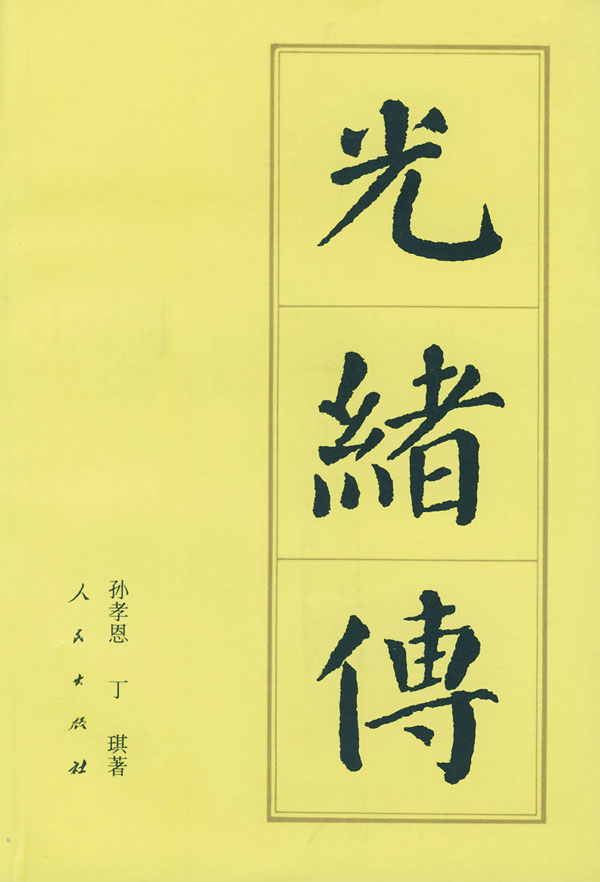 光緒傳
孙孝恩 丁 琪著
人民出版社